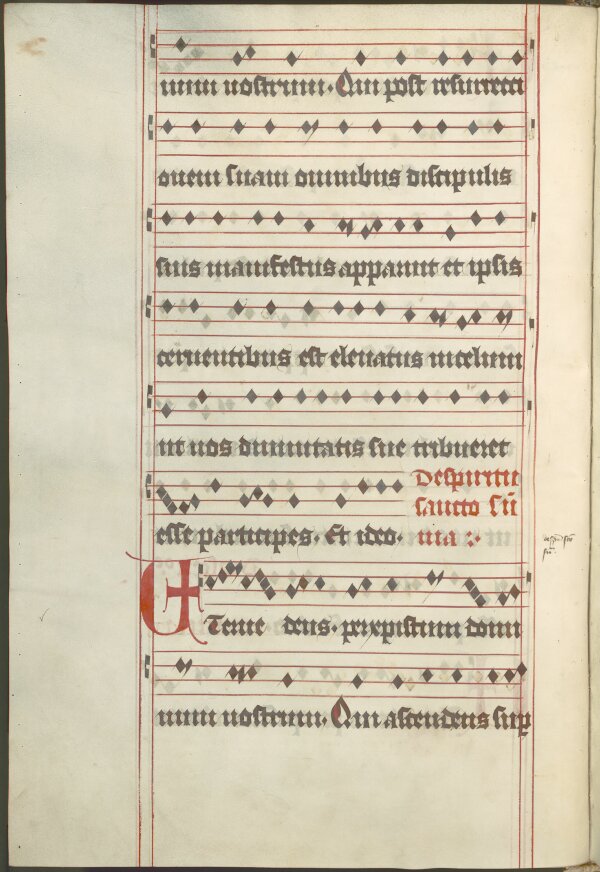 num nostrum. Qui post resurrecti
onem suam omnibus discipulis
suis manifestus apparuit et ipsis
cernentibus est eleuatus in celum
ut nos diuinitatis sue tribueret
De spiritu
sancto sū
esse participes. Et ideo. ma :
Eterne deus. per xpistum domi
num nostrum. Qui ascendens sup